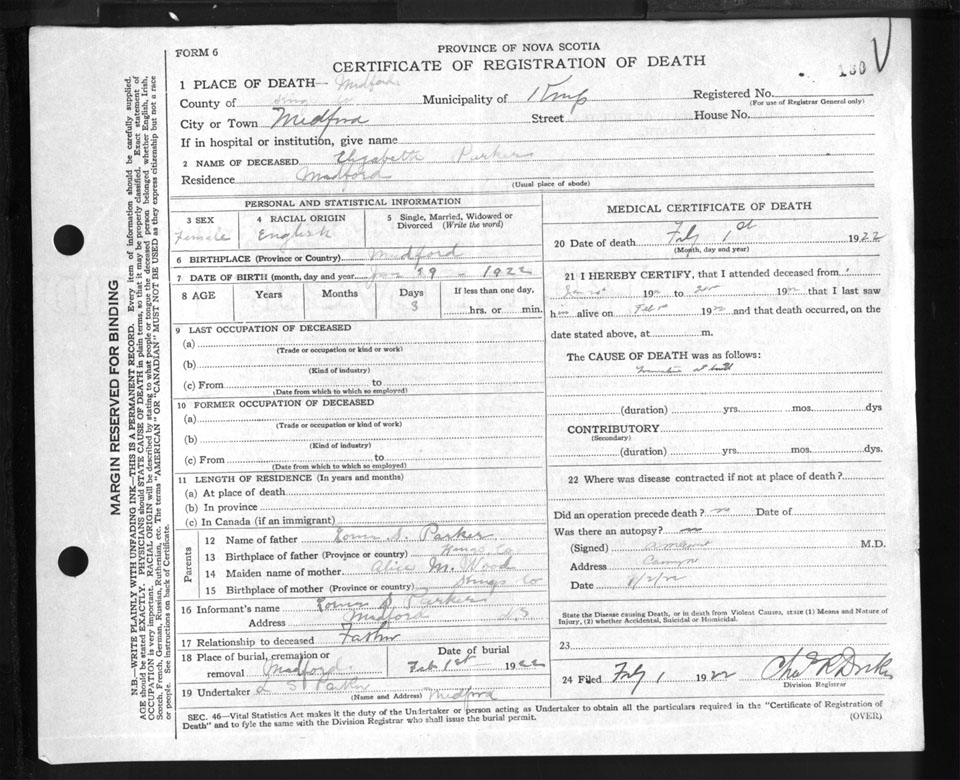 FORM 6
PROVINCE OF NOVA SCOTIA
CERTIFICATE OF REGISTRATION OF DEATH
1 PLACE OF DEATH— Medford
County of Municipality of Kings Registered No.
(For use of Registrar General only)
City or Town Medford Street House No.
If in hospital or institution, give name
2 NAME OF DECEASED Elizabeth Parker
Residence Medford
(Usual place of abode)
PERSONAL AND STATISTICAL INFORMATION
3 SEX
Female
4 RACIAL ORIGIN
English
5 Single, Married, Widowed or
Divorced (Write the word)
6 BIRTHPLACE (Province or Country) Medford
7 DATE OF BIRTH (month, day and year Jan 29 - 1922
8 AGE Years Months Days If less than one day,
3 hrs. or min.
9 LAST OCCUPATION OF DECEASED
(a)
(Trade or occupation or kind or work)
(b)
(Kind of industry)
(c) From to
(Date from which to which so employed)
10 FORMER OCCUPATION OF DECEASED
(a)
(Trade or occupation or kind of work)
(b)
(Kind of industry)
(c) From to
(Date from which to which so employed)
11 LENGTH OF RESIDENCE (In years and months)
(a) At place of death
(b) In province
(c) In Canada (if an immigrant)
Parents
12 Name of father Louis S. Parker
13 Birthplace of father (Province or country) Kings Co
14 Maiden name of mother Alice M. Wood
15 Birthplace of mother (Province or country) Kings Co
16 Informant's name Louis S Parker
Address Medford N.S
17 Relationship to deceased Father
18 Place of burial, cremation or
removal Medford
Date of burial
Feb 1st 1922
19 Undertaker L S Parker Medford
(Name and Address)
MEDICAL CERTIFICATE OF DEATH
20 Date of death Feby 1st 1922
(Month, day and year)
21 I HEREBY CERTIFY, that I attended deceased from
19 to 19 that I last saw
h alive on 19 and that death occurred, on the
date stated above, at m.
The CAUSE OF DEATH was as follows:
(duration) yrs. mos. dys
CONTRIBUTORY
(Secondary)
(duration) yrs. mos. dys.
22 Where was disease contracted if not at place of death?
Did an operation precede death? no Date of
Was there an autopsy? no
(Signed) M.D.
Address
Date
State the Disease causing Death, or in death from Violent Causes, state (1) Means and Nature of
Injury, (2) whether Accidental, Suicidal or Homicidal.
23
24 Filed Feby 1 1922
Division Registrar
SEC. 46—Vital Statistics Act makes it the duty of the Undertaker or person acting as Undertaker to obtain all the particulars required in the "Certificate of Registration of
Death" and to fyle the same with the Division Registrar who shall issue the burial permit.
(OVER)
MARGIN RESERVED FOR BINDING
N.B.—WRITE PLAINLY WITH UNFADING INK—THIS IS A PERMANENT RECORD. Every item of information should be carefully supplied.
AGE should be stated EXACTLY. PHYSICIANS should STATE CAUSE OF DEATH in plain terms, so that it may be properly classified. Exact statement of
OCCUPATION is very important. RACIAL ORIGIN will be described by stating to what people or tongue the deceased person belonged whether English, Irish,
Scotch, French, German, Russian, Ruthenian, etc. The terms "AMERICAN" OR "CANADIAN" MUST NOT BE USED as they express citizenship but not a race
or people. See instructions on back of Certificate.